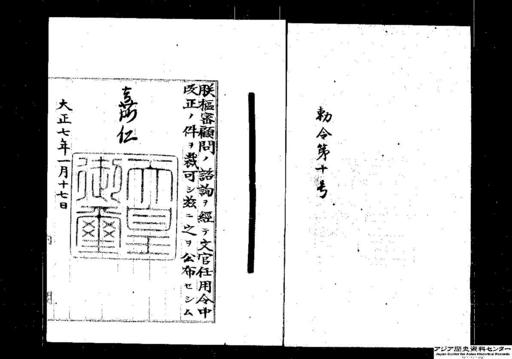 勅令第十号
朕樞密顧問ノ諮詢ヲ經テ文官任用令中
改正ノ件ヲ裁可シ茲ニ之ヲ公布セシム
嘉仁
天皇御璽
大正七年一月十七日
アジア歴史資料センター
Japan Center for Asian Historical Records